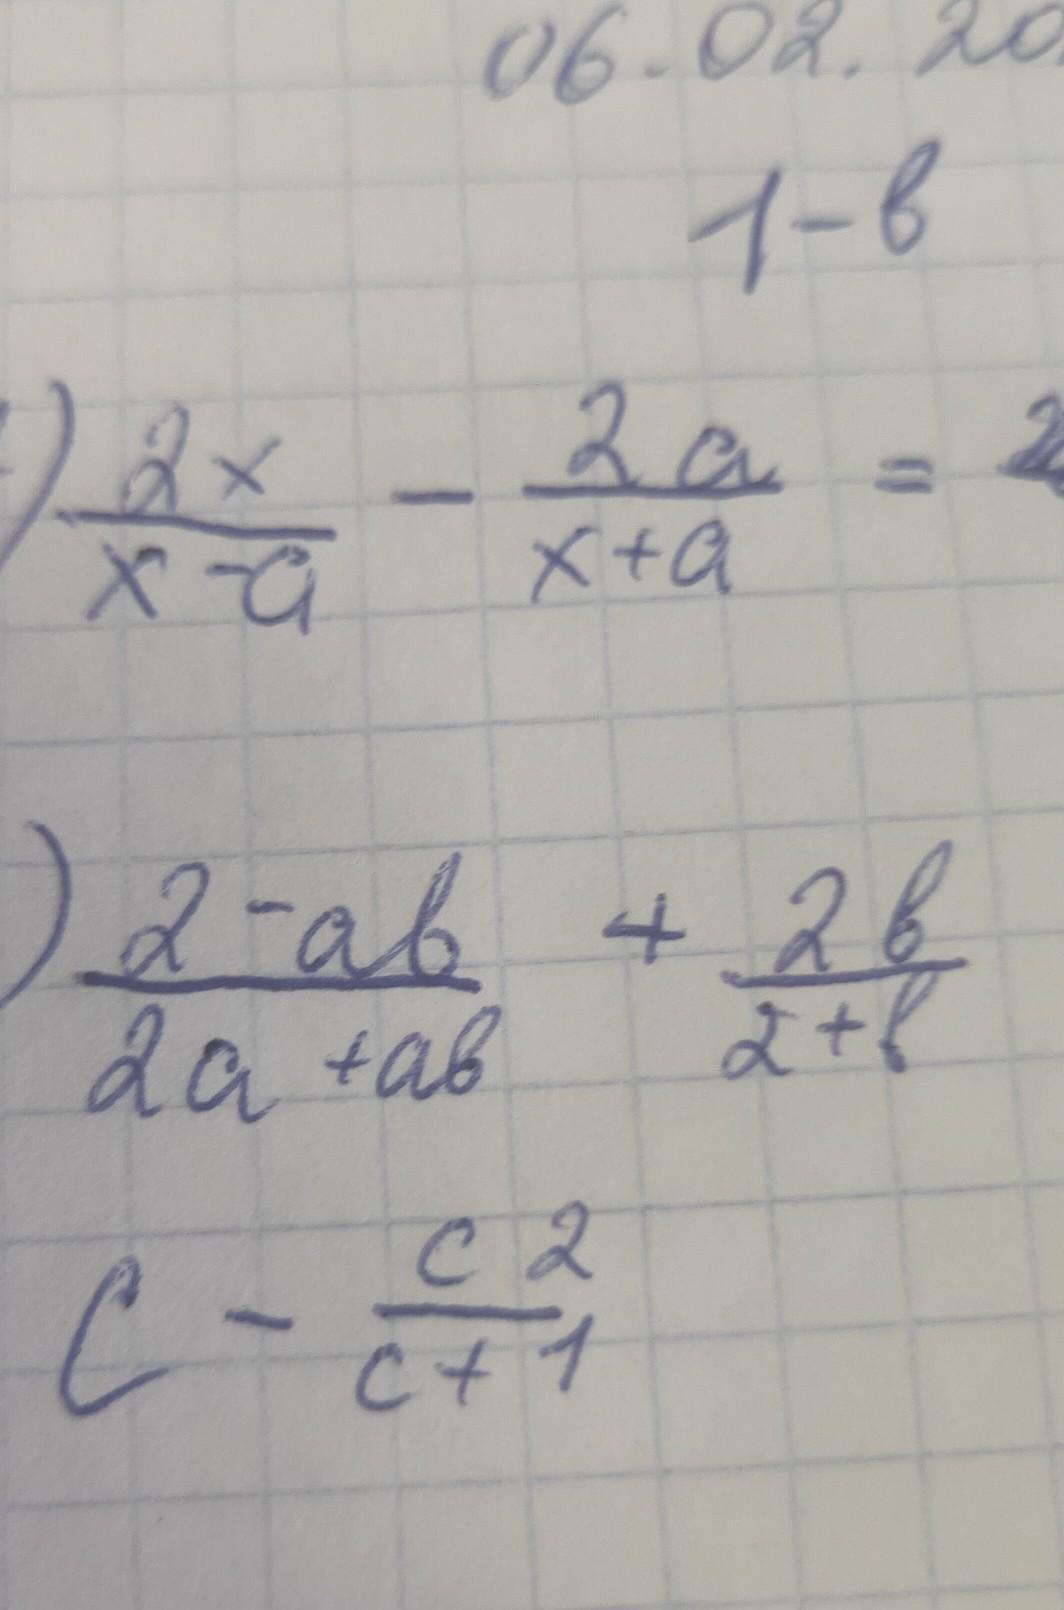 06.02.20
1-в
) 2x/x-a - 2a/x+a = 2
) 2-ab/2a+ab + 2b/2+b
c - c2/c+1